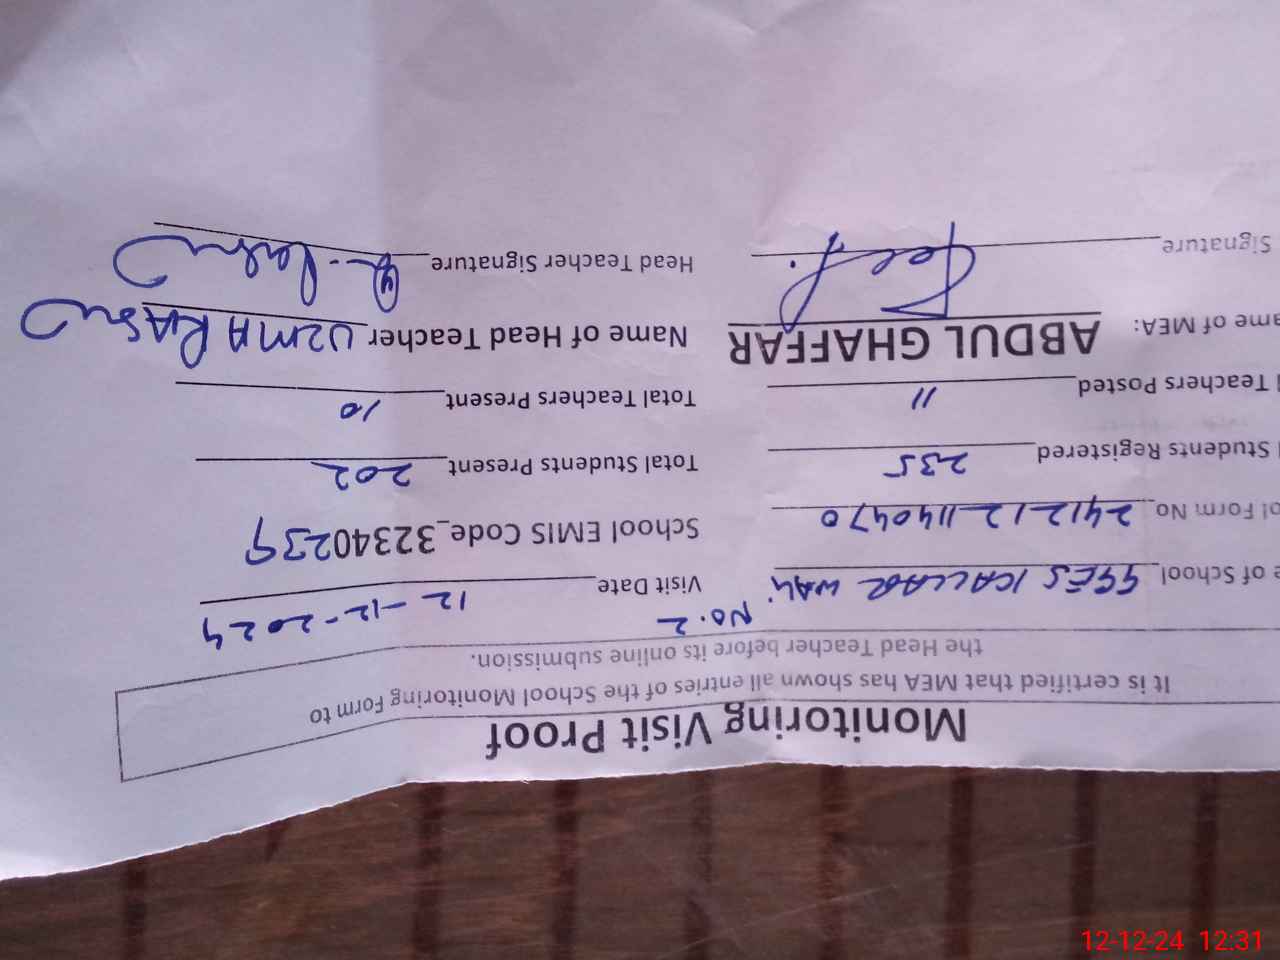 Monitoring Visit Proof
It is certified that MEA has shown all entries of the School Monitoring Form to
the Head Teacher before its online submission.
e of School GGES KALLAR WALI No. 2 Visit Date 12-12-2024
ol Form No. 241212114 0470 School EMIS Code_32340239
l Students Registered 235 Total Students Present 202
l Teachers Posted 11 Total Teachers Present 10
ame of MEA: ABDUL GHAFFAR Name of Head Teacher UZMA RIASAT
Signature Head Teacher Signature
12-12-24 12:31